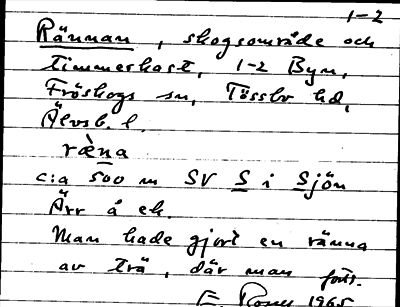 1-2
Rännan, skogsområde och
timmerkast, 1-2 Byn,
Fröskogs sn, Tössbo hd,
Älvsb. l.
ræ̀na
c:a 500 m SV S i Sjön
Ärr å ek.
Man hade gjort en ränna
av trä, där man forts.
E. 1965